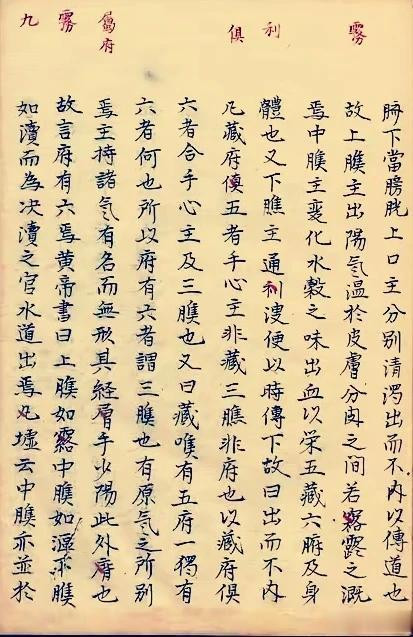 霧
利
俱
屬府
霧
九
臍下當膀胱上口主分別清濁出而不內以傳道也
故上膲主出陽氣温於皮膚分肉之間若霧露之溉
焉中膲主變化水穀之味出血以荣五藏六腑及身
體也又下膲主通利溲便以時傳下故曰出而不內
凡藏府俱五者手心主非藏三膲非府也以藏府俱
六者合手心主及三膲也又曰藏唯有五府一獨有
六者何也所以府有六者謂三膲也有原氣之所別
焉主持諸氣有名而無形其経屬手少陽此外府也
故言府有六焉黄帝書曰上膲如霧中膲如漚下膲
如瀆而為决瀆之官水道出焉丸墟云中膲亦並於